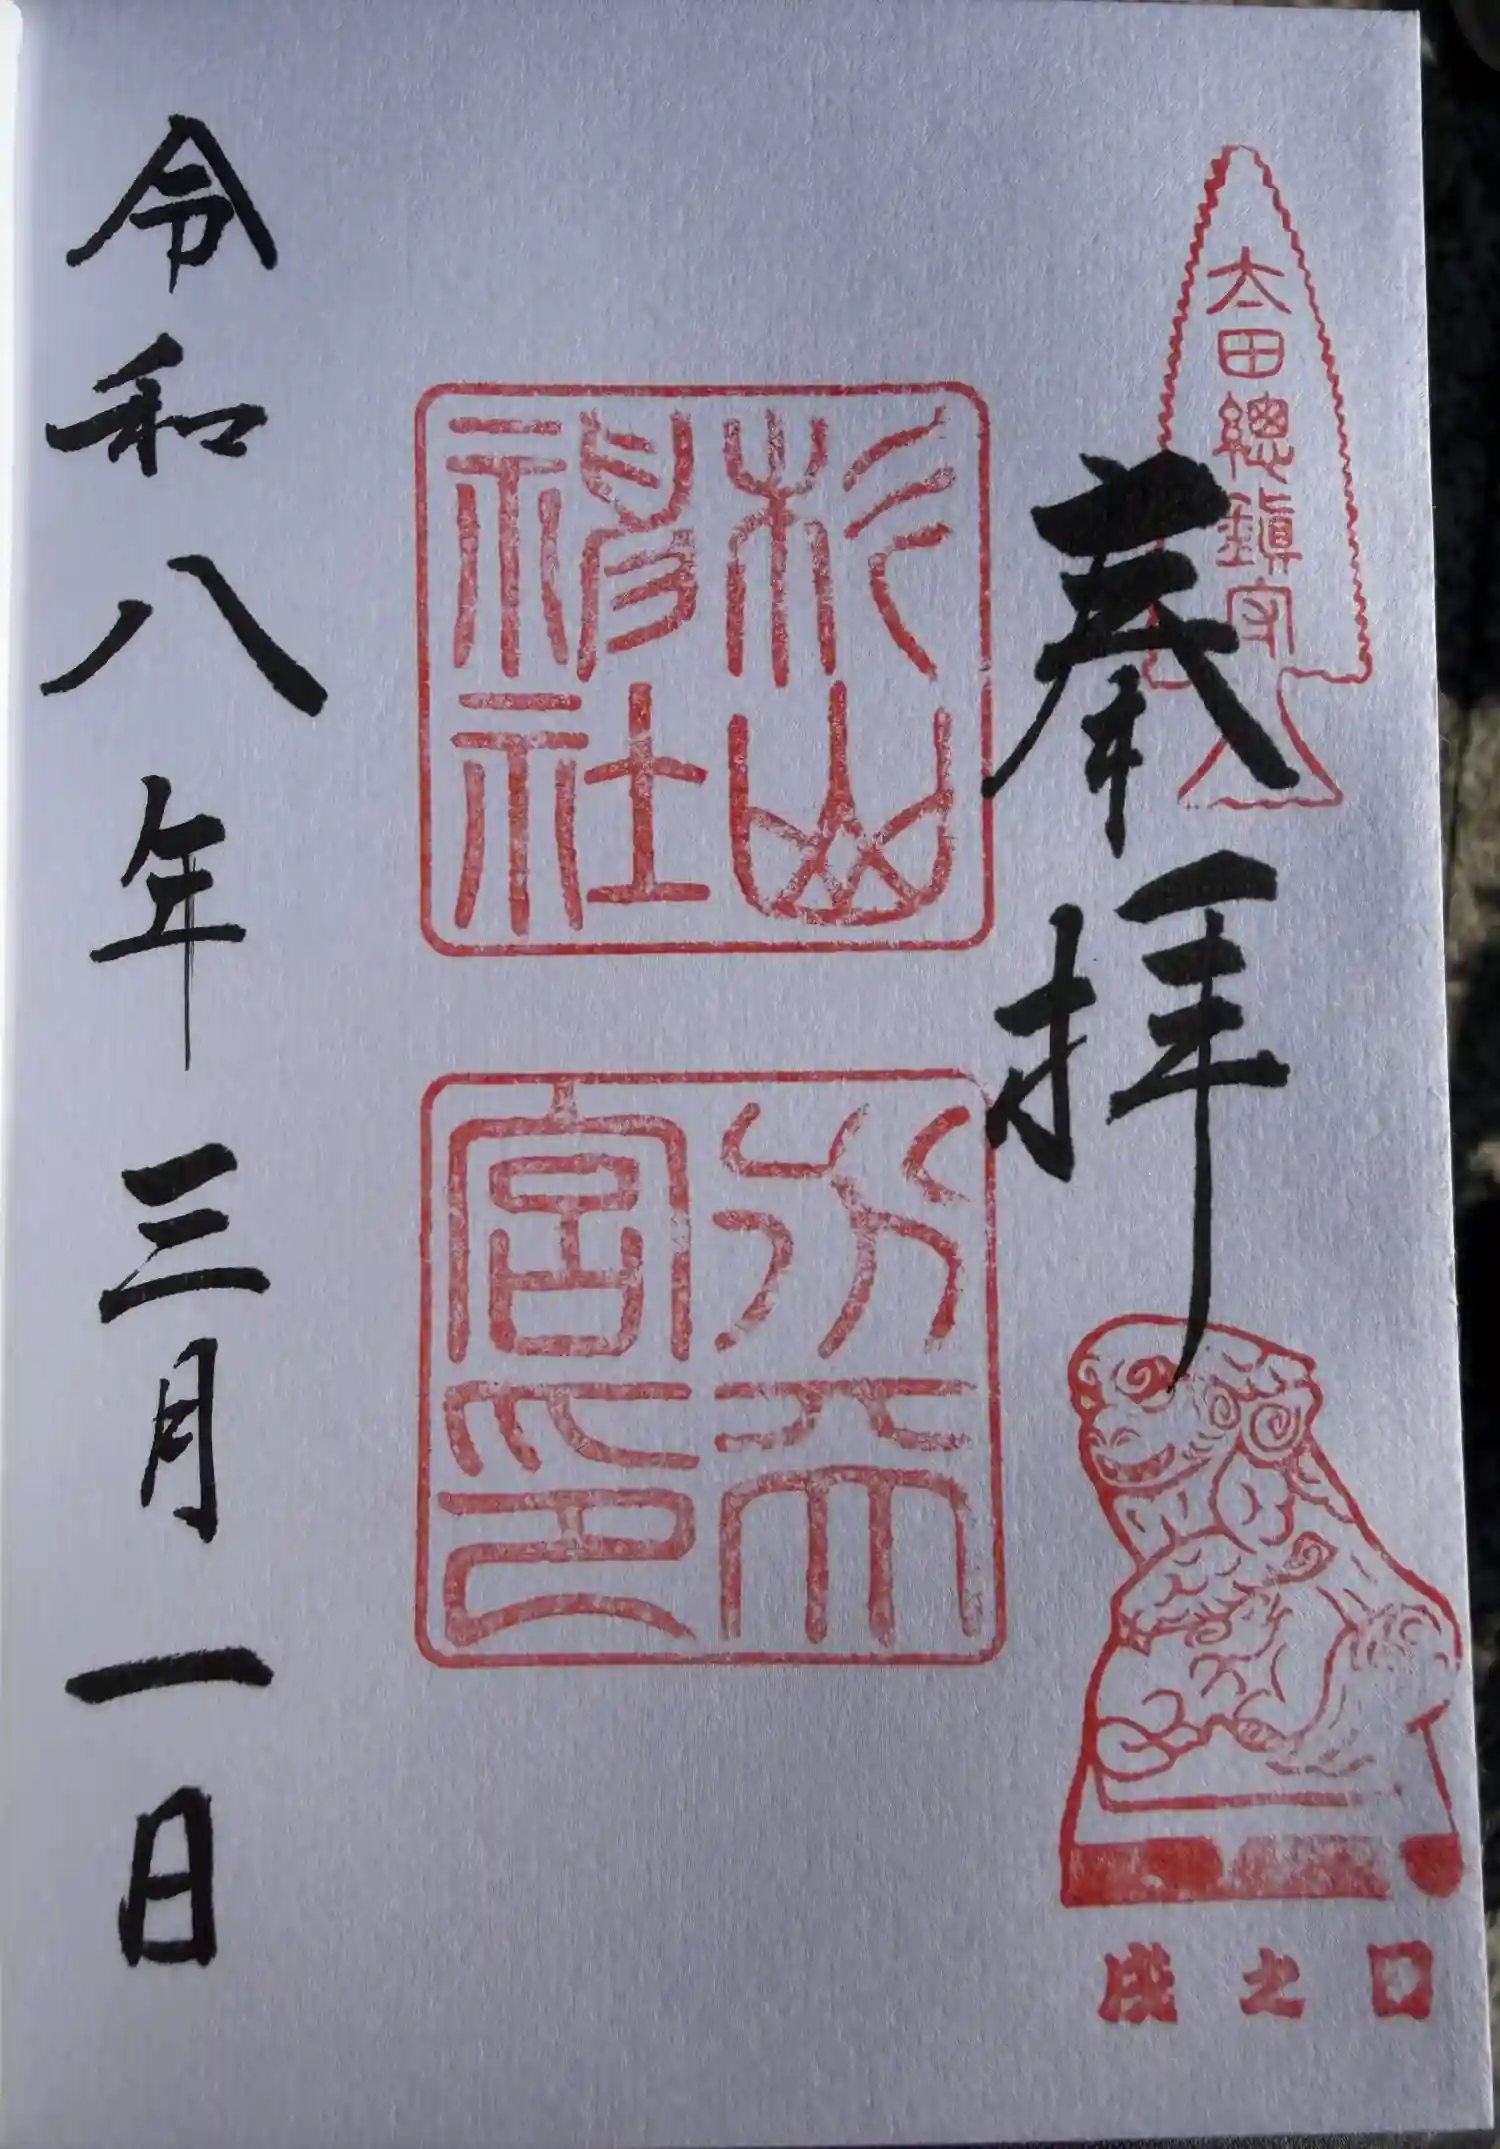 太田總鎮守
奉拝
杉山
神社
水天
宮印
戌之日
令和八年三月一日